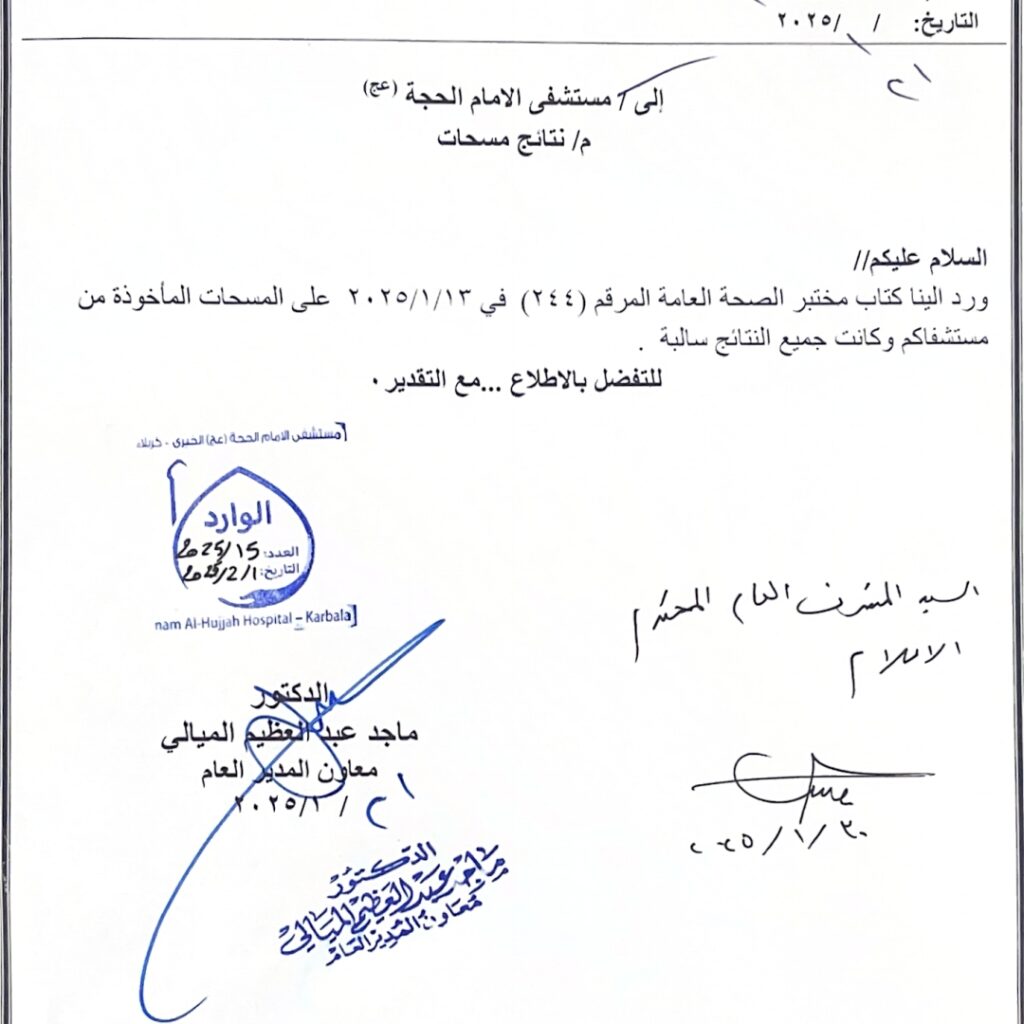 التاريخ: / ١ /٢٠٢٥
٢١
إلى / مستشفى الامام الحجة (عج)
م/ نتائج مسحات
السلام عليكم//
ورد الينا كتاب مختبر الصحة العامة المرقم (٢٤٤) في ٢٠٢٥/١/١٣ على المسحات المأخوذة من
مستشفاكم وكانت جميع النتائج سالبة .
للتفضل بالاطلاع ...مع التقدير ٠
مستشفى الامام الحجة (عج) الخيري - كربلاء
الوارد
العدد: 2025/15
التاريخ: 2025/2/1
nam Al-Hujjah Hospital – Karbala
السيد المشرف العام المحترم
الدكتور
ماجد عبد العظيم الميالي
معاون المدير العام
٢١ / ٢٠٢٥/١
٢٠٢٥/١/٣٠
الدكتور
ماجد عبد العظيم الميالي
معاون المدير العام